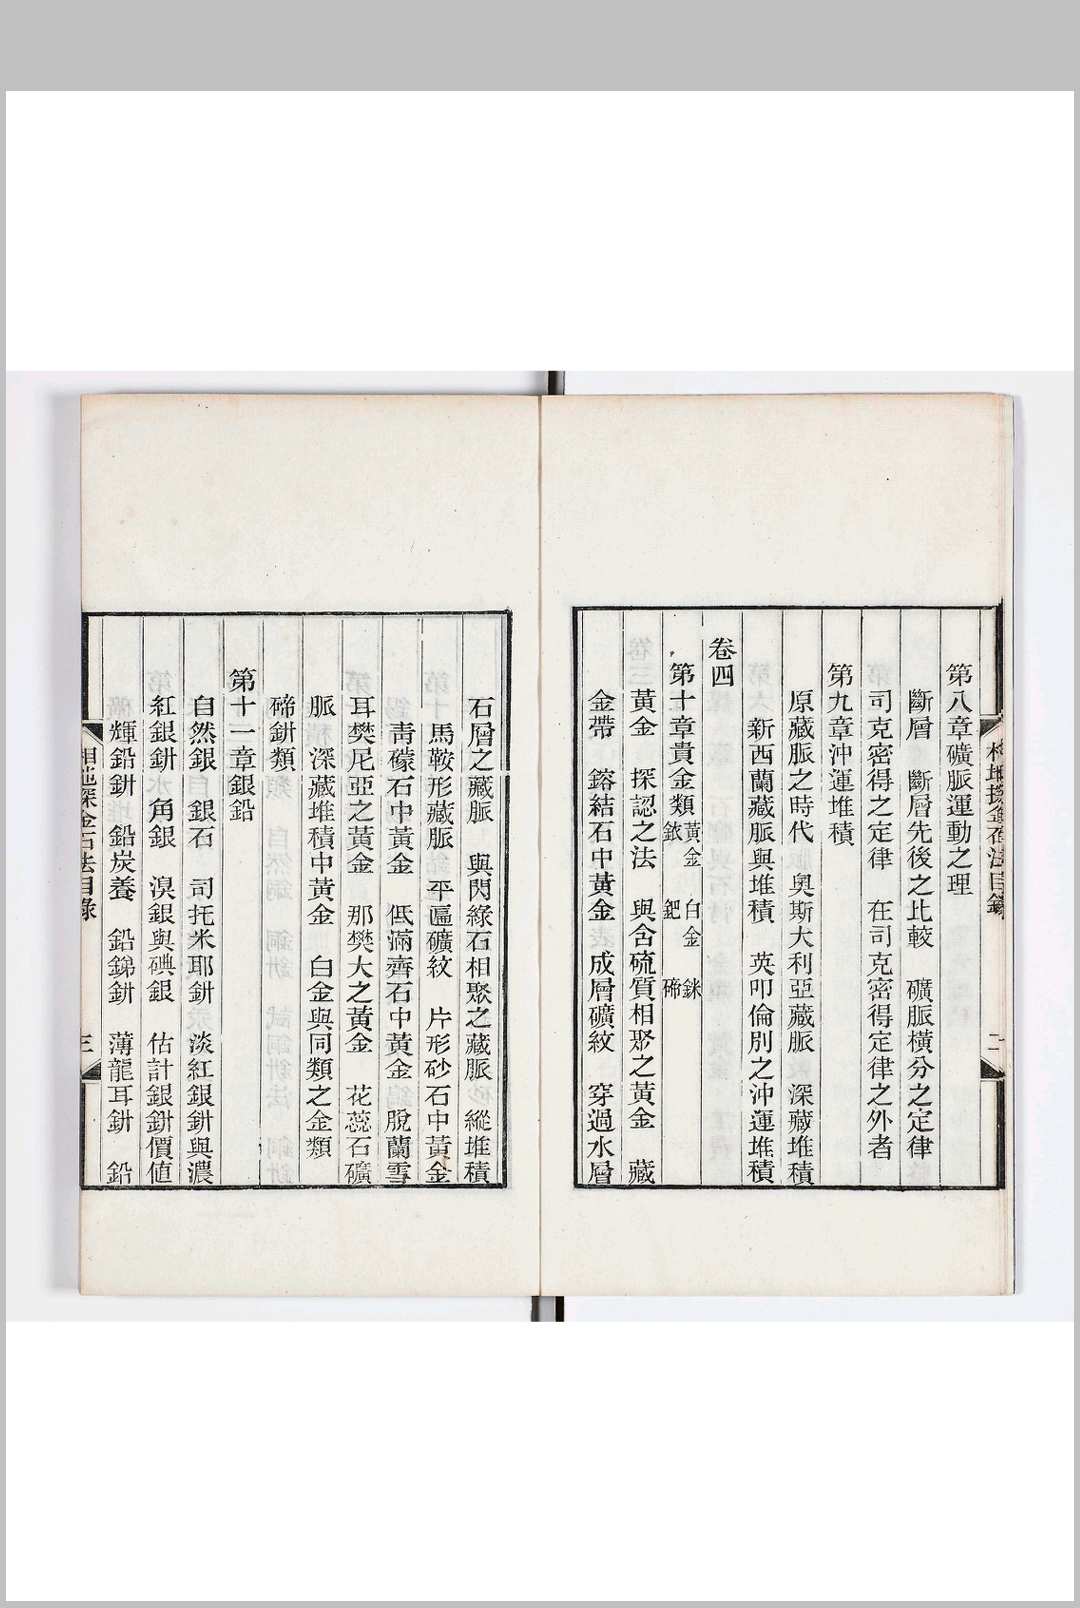 第八章礦脈運動之理
斷層 斷層先後之比較 礦脈橫分之定律
司克密得之定律 在司克密得定律之外者
第九章沖運堆積
原藏脈之時代 奧斯大利亞藏脈 深藏堆積
新西蘭藏脈與堆積 英叩倫別之沖運堆積
卷四
第十章貴金類 黃金 白金 銤 銥 鈀 碲
黃金 探認之法 與含硫質相聚之黃金 藏
金帶 鎔結石中黃金 成層礦紋 穿過水層
相地探金石法目錄 二
石層之藏脈 與閃綠石相聚之藏脈 縱堆積
馬鞍形藏脈 平匾礦紋 片形砂石中黃金
靑礞石中黃金 低滿齊石中黃金 脫蘭雪
耳樊尼亞之黃金 那樊大之黃金 花蕊石礦
脈 深藏堆積中黃金 白金與同類之金類
碲鉼類
第十一章銀鉛
自然銀 銀石 司托米耶鉼 淡紅銀鉼與濃
紅銀鉼 角銀 溴銀與碘銀 估計銀鉼價値
輝鉛鉼 鉛炭養 鉛銻鉼 薄龍耳鉼 鉛
相地探金石法目錄 三